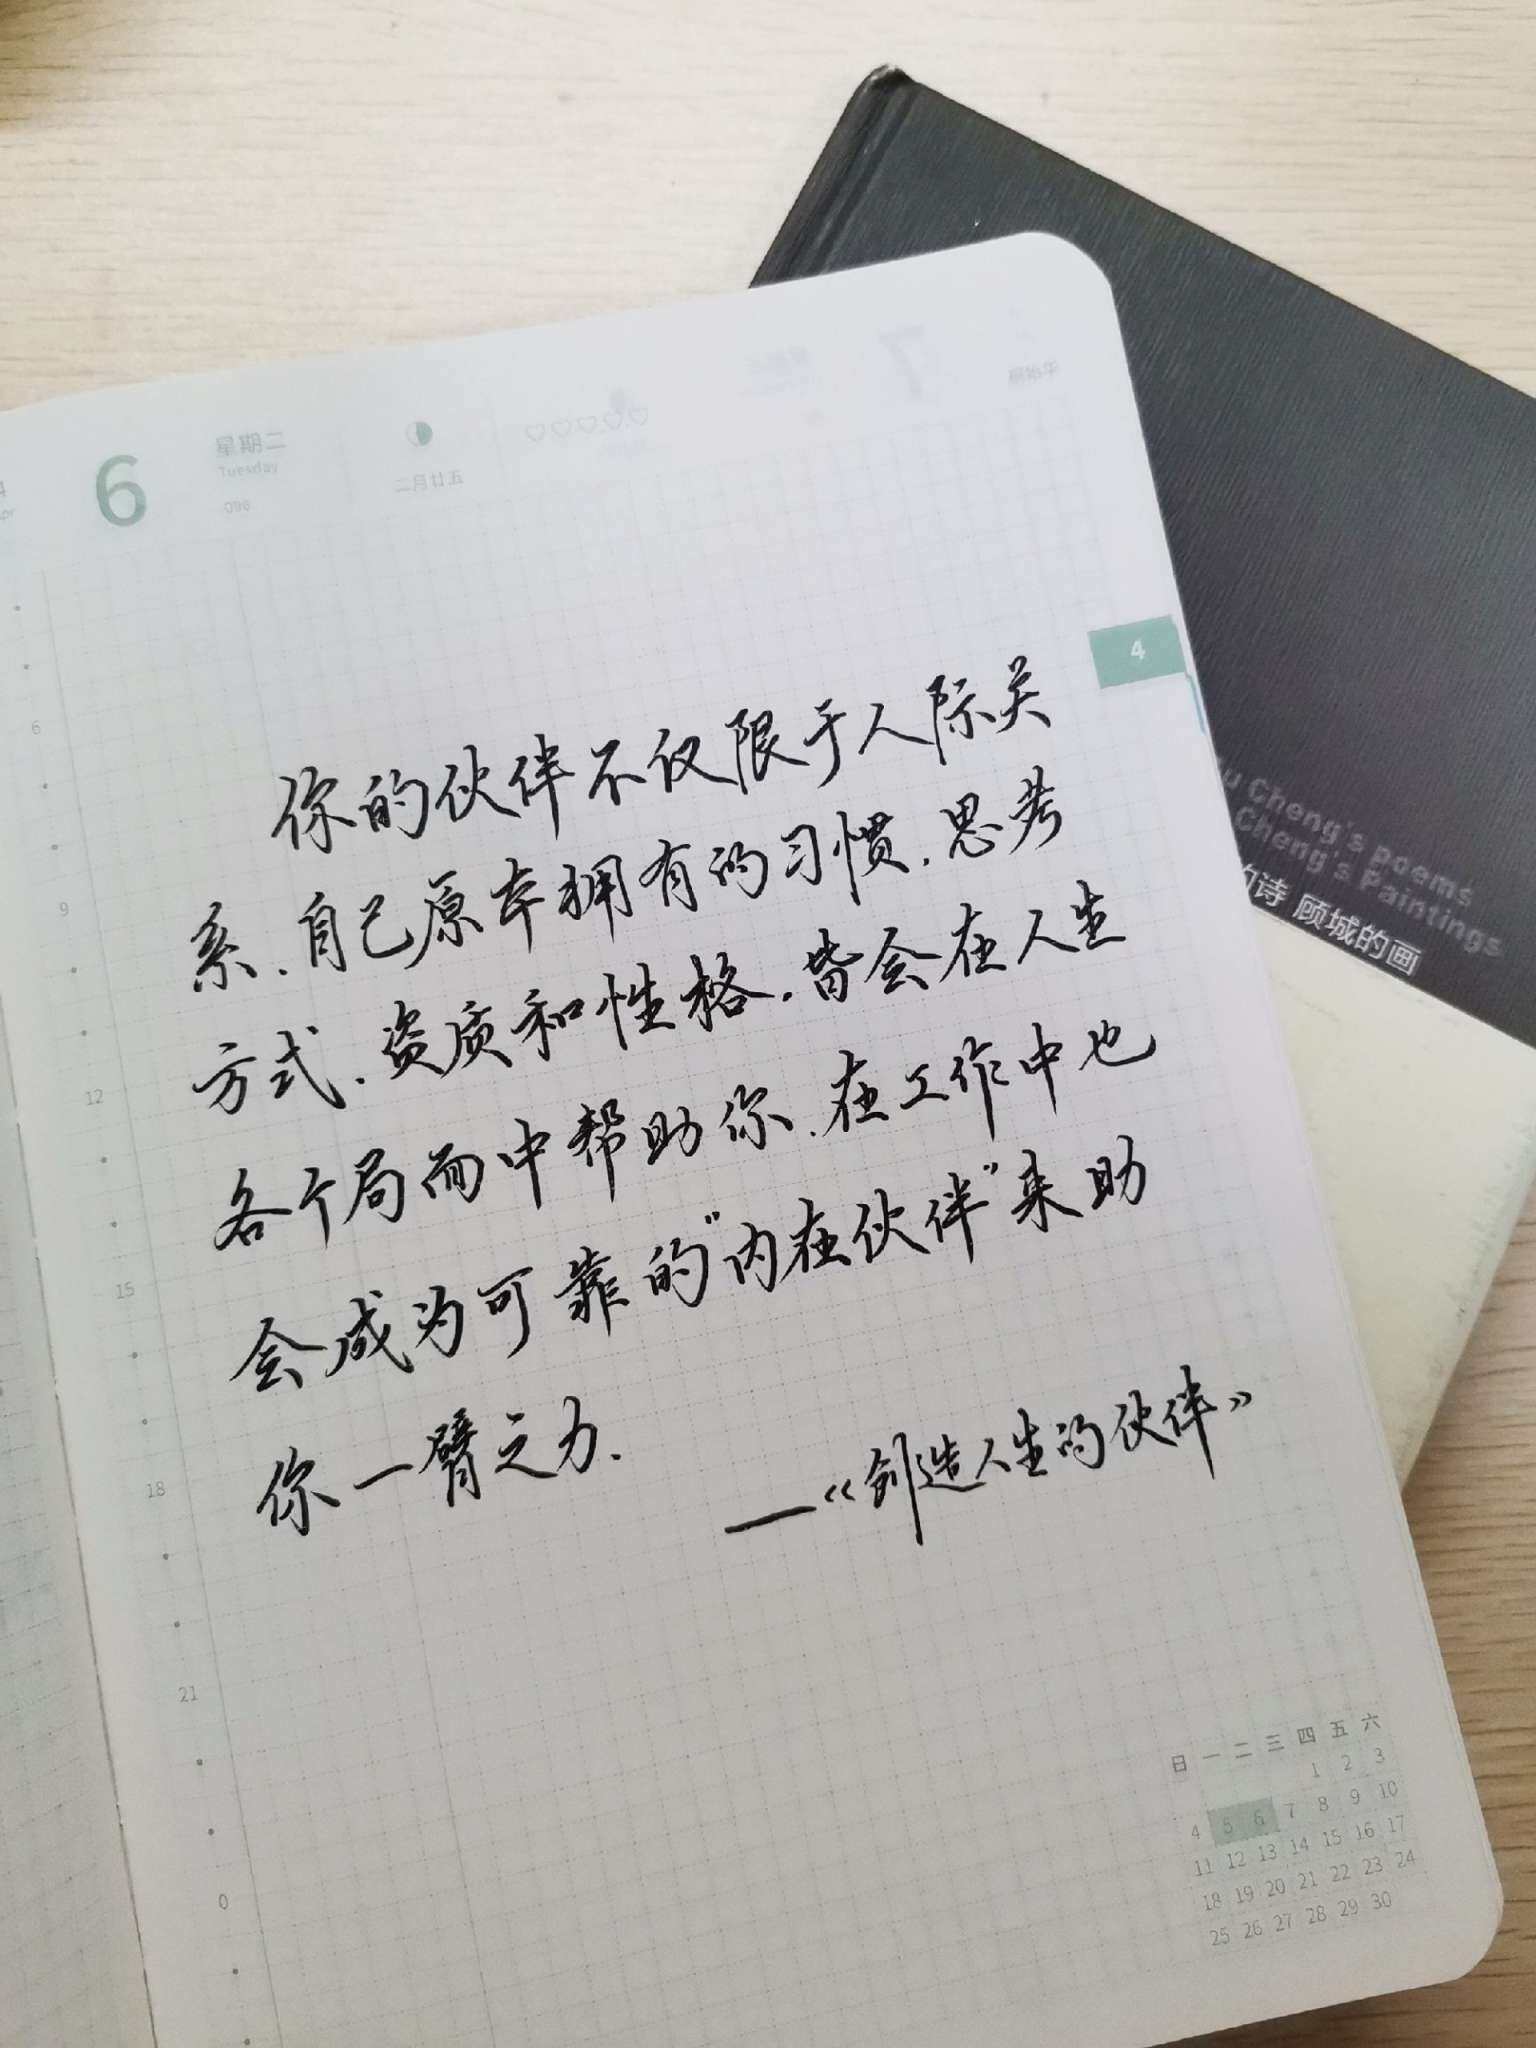 6
星期二
Tuesday
096
二月廿五
7
4
你的伙伴不仅限于人际关
系.自己原本拥有的习惯.思考
方式.资质和性格.皆会在人生
各个局面中帮助你.在工作中也
会成为可靠的"内在伙伴"来助
你一臂之力.
—《创造人生的伙伴》
6
9
12
15
18
21
0
日 一 二 三 四 五 六
1 2 3
4 5 6 7 8 9 10
11 12 13 14 15 16 17
18 19 20 21 22 23 24
25 26 27 28 29 30
Cheng's poems
Cheng's Paintings
的诗 顾城的画